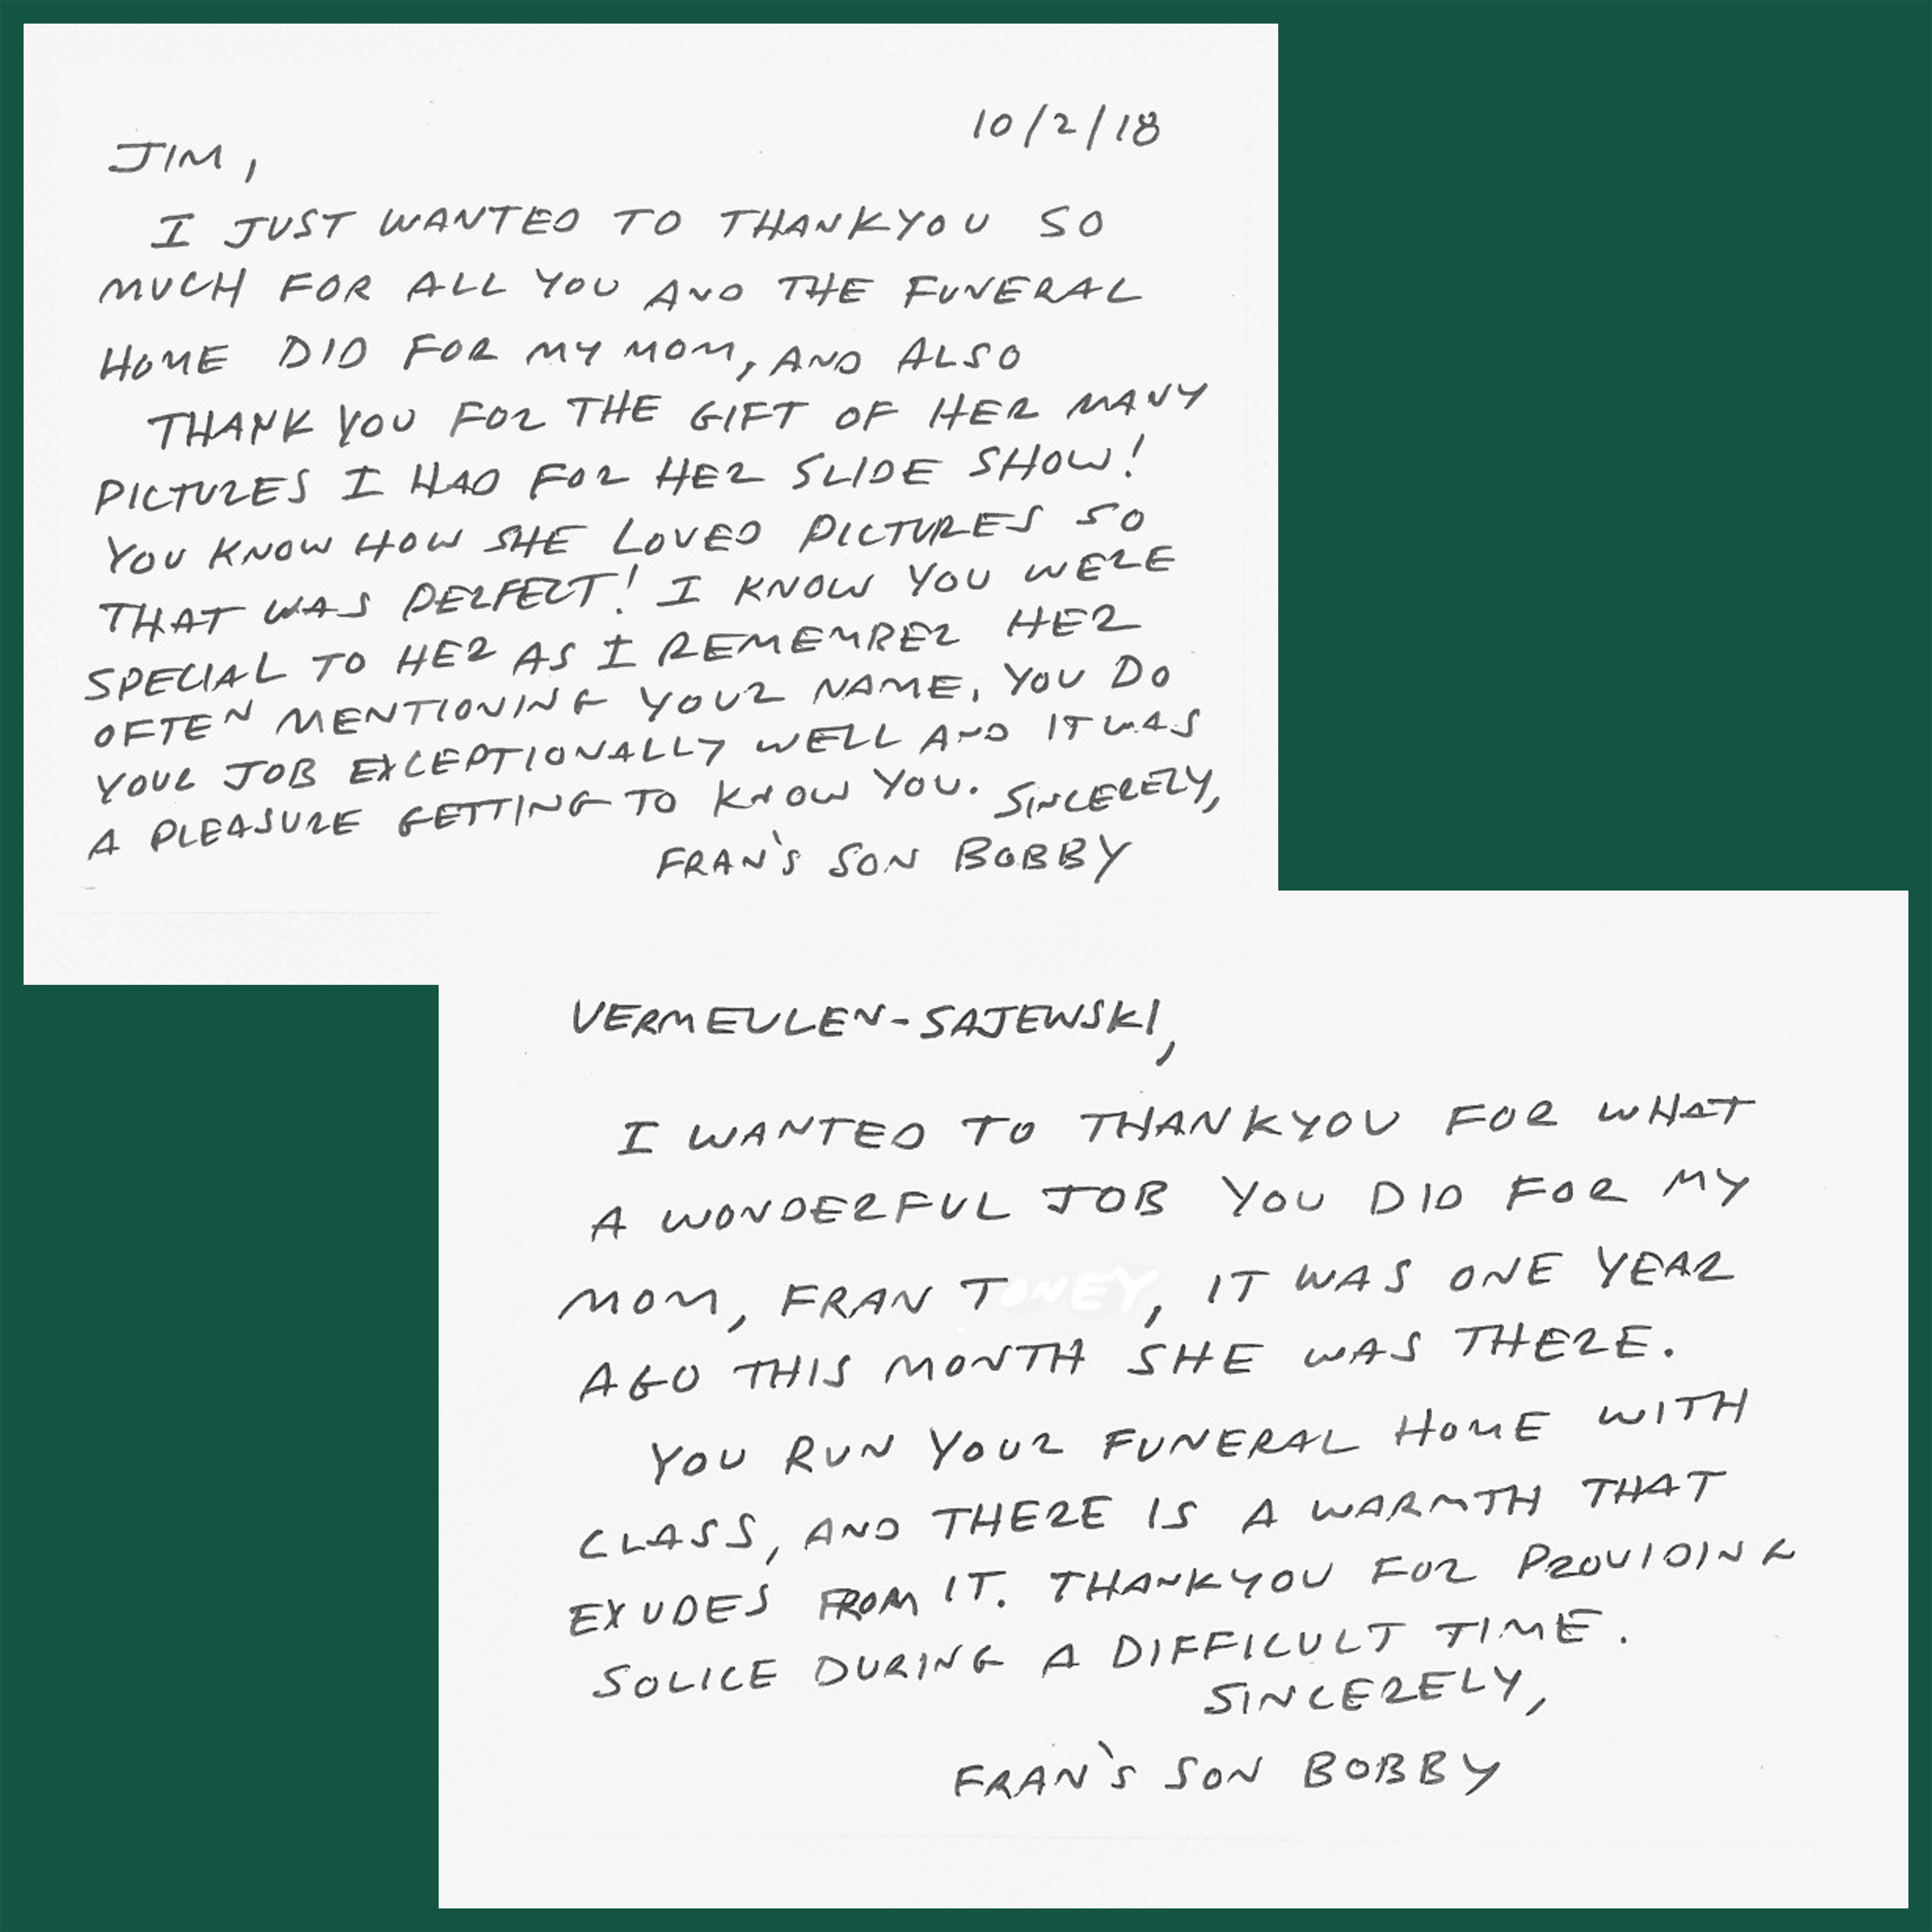 10/2/18
JIM,
I JUST WANTED TO THANKYOU SO
MUCH FOR ALL YOU AND THE FUNERAL
HOME DID FOR MY MOM, AND ALSO
THANK YOU FOR THE GIFT OF HER MANY
PICTURES I HAD FOR HER SLIDE SHOW!
YOU KNOW HOW SHE LOVED PICTURES SO
THAT WAS PERFECT! I KNOW YOU WERE
SPECIAL TO HER AS I REMEMBER HER
OFTEN MENTIONING YOUR NAME. YOU DO
YOUR JOB EXCEPTIONALLY WELL AND IT WAS
A PLEASURE GETTING TO KNOW YOU. SINCERELY,
FRAN'S SON BOBBY
VERMEULEN-SAJEWSKI,
I WANTED TO THANKYOU FOR WHAT
A WONDERFUL JOB YOU DID FOR MY
MOM, FRAN T , IT WAS ONE YEAR
AGO THIS MONTH SHE WAS THERE.
YOU RUN YOUR FUNERAL HOME WITH
CLASS, AND THERE IS A WARMTH THAT
EXUDES FROM IT. THANKYOU FOR PROVIDING
SOLICE DURING A DIFFICULT TIME.
SINCERELY,
FRAN'S SON BOBBY